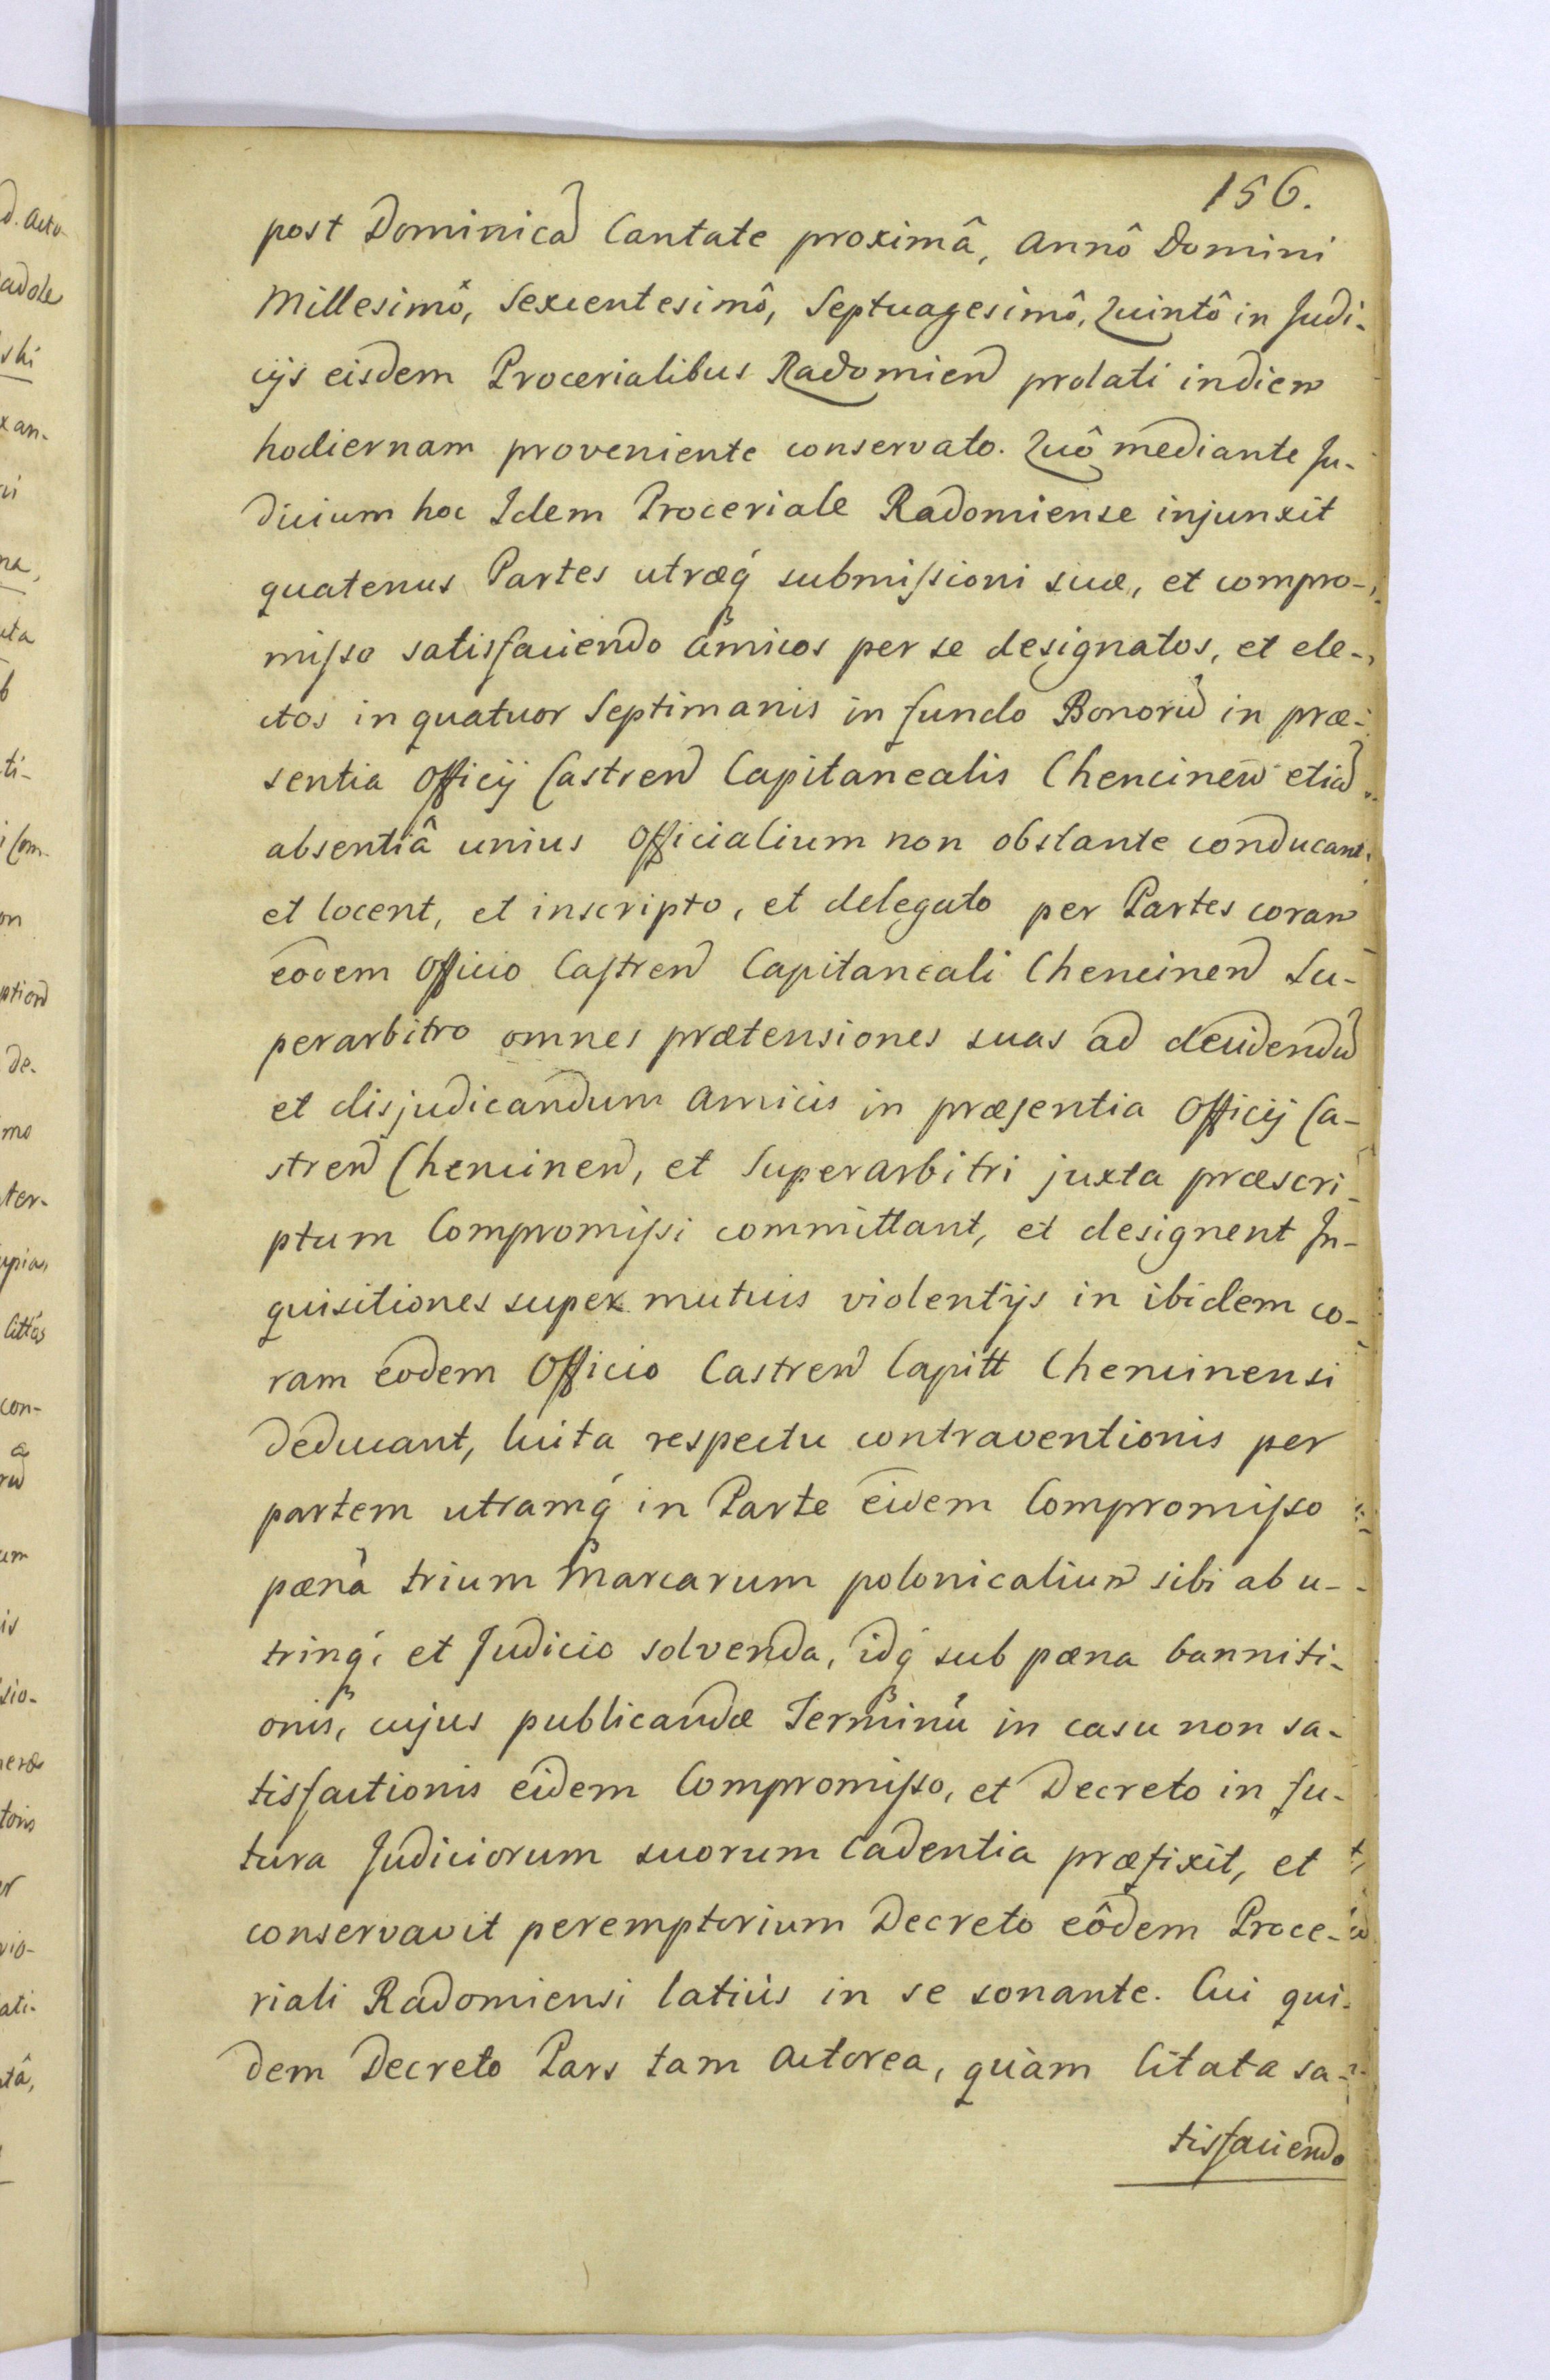 156.
post Dominicā Cantate proximâ, Annô Domini
Millesimô, Sexcentesimô, Septuagesimô, Quintô in Judi-
cijs eisdem Procerialibus Radomien̄ prolati in diem
hodiernam proveniente conservato. Quô mediante Ju-
dicium hoc Idem Proceriale Radomiense injunxit
quatenus Partes utræq́ submissioni suæ, et compro-
misso satisfaciendo Amicos per se designatos, et ele-
ctos in quatuor Septimanis in fundo Bonorū in præ-
sentia Officij Castren̄ Capitanealis Chencinen̄ etiā
absentiâ unius Officialium non obstante conducant
et locent, et inscripto, et delegato per Partes coram
eodem Officio Castren̄ Capitaneali Chencinen̄ Su-
perarbitro omnes prætensiones suas ad decidendū
et disjudicandum Amicis in præsentia Officij Ca-
stren̄ Chencinen̄, et Superarbitri juxta præscri-
ptum Compromissi committant, et designent In-
quisitiones super mutuis violentijs in ibidem co-
ram eodem Officio Castren̄ Capitt Chencinensi
deducant, luita respectu contraventionis per
partem utramq́ in Parte eidem Compromisso
pœnâ trium Marcarum polonicalium sibi ab u-
trinq́, et Judicio solvenda, idq́ sub pœna banniti-
onis, cujus publicandæ Terminū in casu non sa-
tisfactionis eidem Compromisso, et Decreto in fu-
tura Judiciorum suorum Cadentia præfixit, et
conservavit peremptorium Decreto eôdem Proce-
riali Radomiensi latiùs in se sonante. Cui qui-
dem Decreto Pars tam Actorea, quàm Citata sa-
tisfaciendo